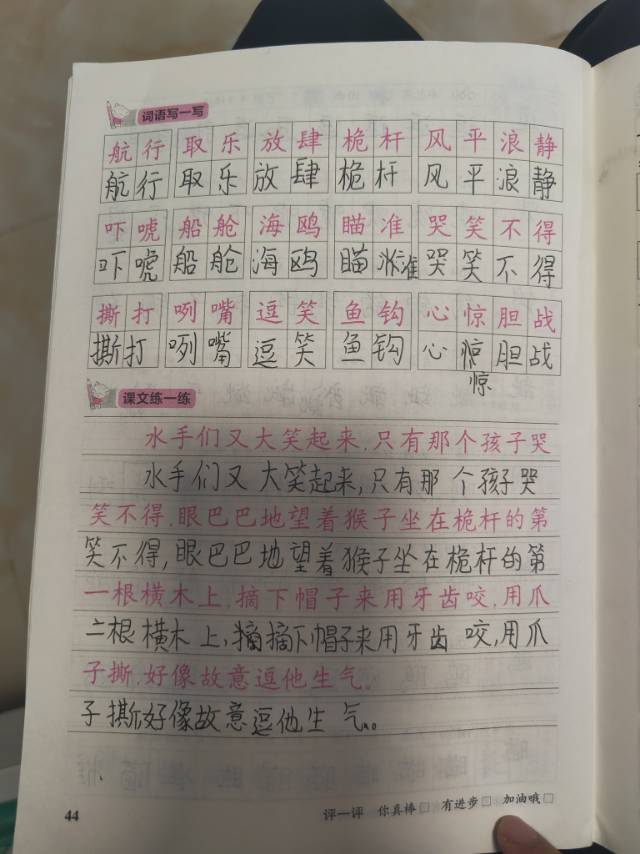 词语写一写
航行 取乐 放肆 桅杆 风平浪静
航行 取乐 放肆 桅杆 风平浪静
吓唬 船舱 海鸥 瞄准 哭笑不得
吓唬 船舱 海鸥 瞄准 哭笑不得
撕打 咧嘴 逗笑 鱼钩 心惊胆战
撕打 咧嘴 逗笑 鱼钩 心惊胆战
惊
课文练一练
水手们又大笑起来,只有那个孩子哭
水手们又大笑起来,只有那个孩子哭
笑不得,眼巴巴地望着猴子坐在桅杆的第
笑不得,眼巴巴地望着猴子坐在桅杆的第
一根横木上,摘下帽子来用牙齿咬,用爪
二根横木上,摘下帽子来用牙齿咬,用爪
子撕,好像故意逗他生气。
子撕,好像故意逗他生气。
44
评一评 你真棒□ 有进步□ 加油哦□